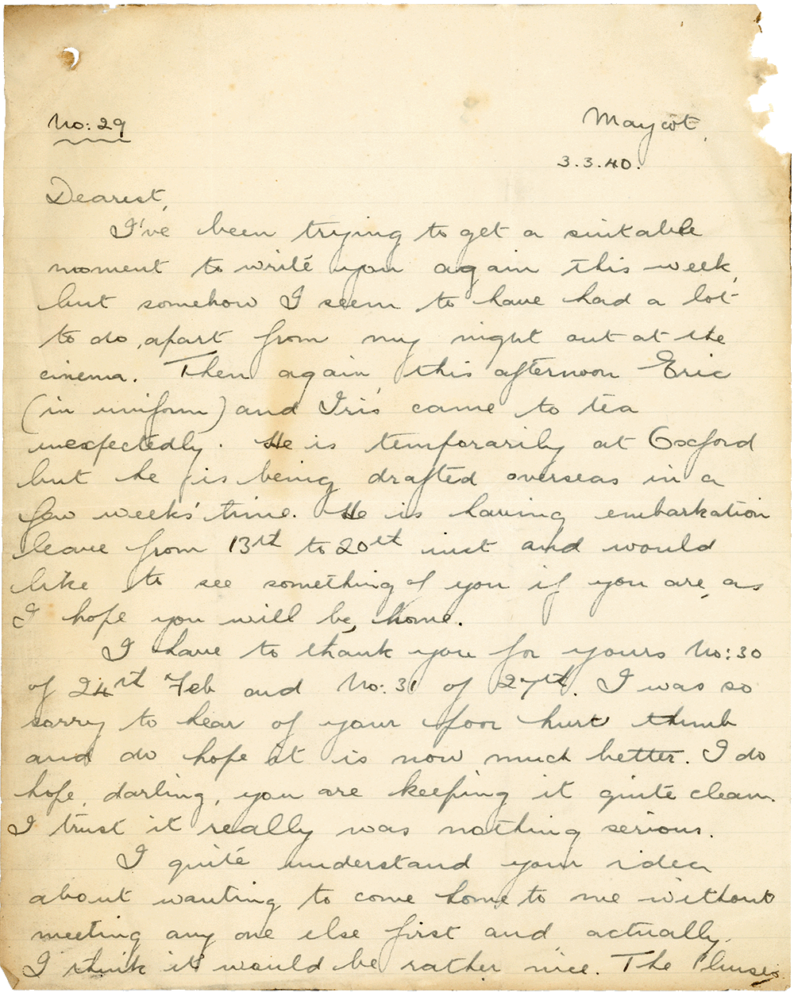 No: 29
Maycot,
3.3.40.
Dearest,
I've been trying to get a suitable
moment to write you again this week,
but somehow I seem to have had a lot
to do, apart from my night out at the
cinema. Then again, this afternoon Eric
(in uniform) and Iris came to tea
unexpectedly. He is temporarily at Oxford
but he is being drafted overseas in a
few weeks' time. He is having embarkation
leave from 13th to 20th inst and would
like to see something of you if you are, as
I hope you will be, home.
I have to thank you for yours No: 30
of 24st Feb and No: 31 of 27th. I was so
sorry to hear of your poor hurt thumb
and do hope it is now much better. I do
hope, darling, you are keeping it quite clean.
I trust it really was nothing serious.
I quite understand your idea
about wanting to come home to me without
meeting any one else first and actually,
I think it would be rather nice. The